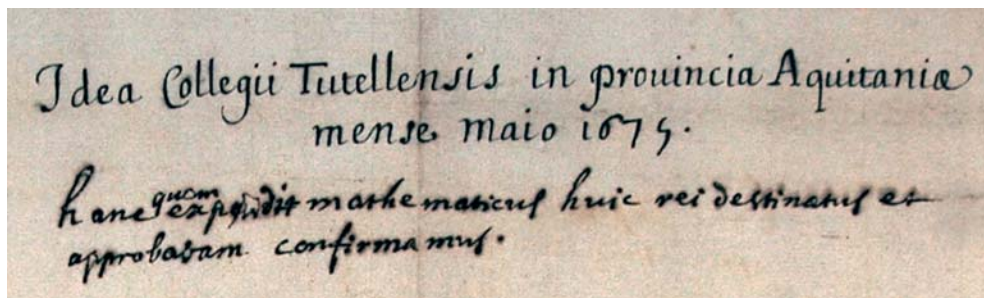 Idea Collegii Tutellensis in prouincia Aquitaniæ
mense maio 1675.
hanc quam expendit mathematicus huic rei destinatus et
approbatam confirmamus.